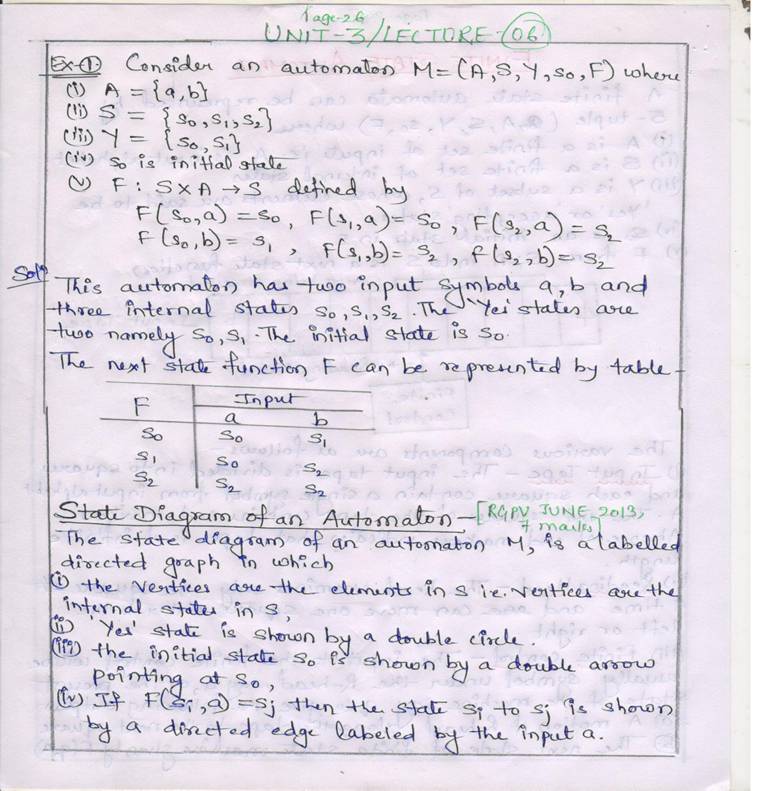 Page-26
UNIT-3/LECTURE-06
Ex-① Consider an automaton M=(A,S,Y,s₀,F) where
(i) A = {a,b}
(ii) S = {s₀,s₁,s₂}
(iii) Y = {s₀,s₁}
(iv) s₀ is initial state
(v) F : S×A → S defined by
F(s₀,a) = s₀, F(s₁,a) = s₀, F(s₂,a) = s₂
F(s₀,b) = s₁, F(s₁,b) = s₂, f(s₂,b) = s₂
Solⁿ This automaton has two input symbols a,b and
three internal states s₀,s₁,s₂. The 'Yes' states are
two namely s₀,s₁. The initial state is s₀.
The next state function F can be represented by table-
F Input
a b
s₀ s₀ s₁
s₁ s₀ s₂
s₂ s₂ s₂
State Diagram of an Automaton - [RGPV JUNE 2013,
7 marks]
The state diagram of an automaton M, is a labelled
directed graph in which
(i) the vertices are the elements in S i.e. vertices are the
internal states in S,
(ii) 'Yes' state is shown by a double circle.
(iii) the initial state s₀ is shown by a double arrow
pointing at s₀,
(iv) If F(si,a) = sj then the state si to sj is shown
by a directed edge labeled by the input a.